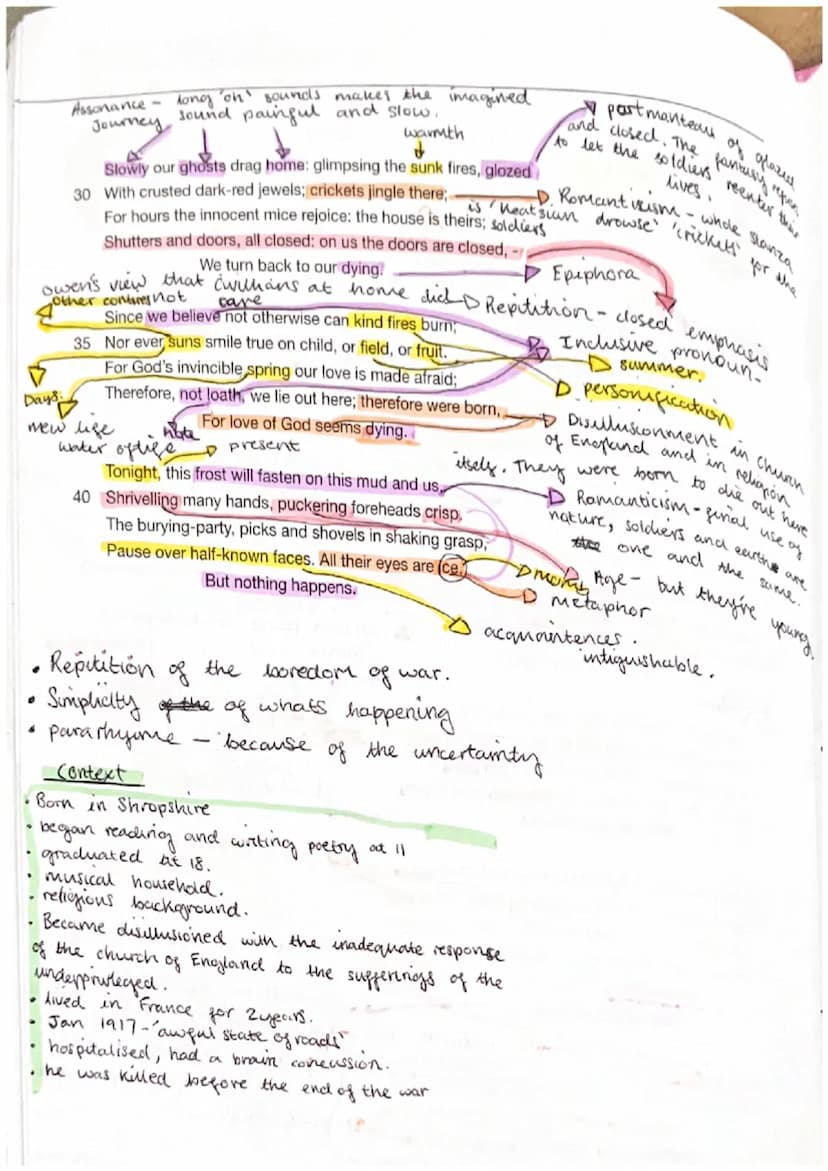 Assonance - long 'oh' sounds makes the imagined
journey sound painful and slow.
warmth
portmanteau of glazed
and closed. The fantasy
to let the soldiers reenter their
lives.
Slowly our ghosts drag home: glimpsing the sunk fires, glozed
30 With crusted dark-red jewels; crickets jingle there;
Romanticism - whole stanza
is 'Keatsian drowse' 'crickets' for the
soldiers
For hours the innocent mice rejoice: the house is theirs;
Shutters and doors, all closed: on us the doors are closed, -
We turn back to our dying.
Epiphora
Owen's view that civilians at home did
not care
Repitition - closed emphasis
other
Since we believe not otherwise can kind fires burn;
35 Nor ever suns smile true on child, or field, or fruit.
Inclusive pronoun -
summer.
For God's invincible spring our love is made afraid;
personification
Days
Therefore, not loath, we lie out here; therefore were born,
new life
For love of God seems dying.
Disillusionment in church
of England and in religion
itself. They were born to die out here
water of life
present
Tonight, this frost will fasten on this mud and us,
40 Shrivelling many hands, puckering foreheads crisp.
Romanticism - final use of
nature, soldiers and earth are
one and the same.
The burying-party, picks and shovels in shaking grasp,
Pause over half-known faces. All their eyes are ice,
Age - but they're young.
metaphor
But nothing happens.
acquointences.
intiguishable.
• Repitition of the boredom of war.
• Simplicity of the of whats happening
• pararhyme - because of the uncertainty
Context
• Born in Shropshire
• began reading and writing poetry at 11
• graduated at 18.
• musical household.
• religious background.
• Became disillusioned with the inadequate response
of the church of England to the sufferings of the
underprivileged.
• lived in France for 2 years.
• Jan 1917 - 'awful state of roads'
• hospitalised, had a brain concussion.
• he was killed before the end of the war